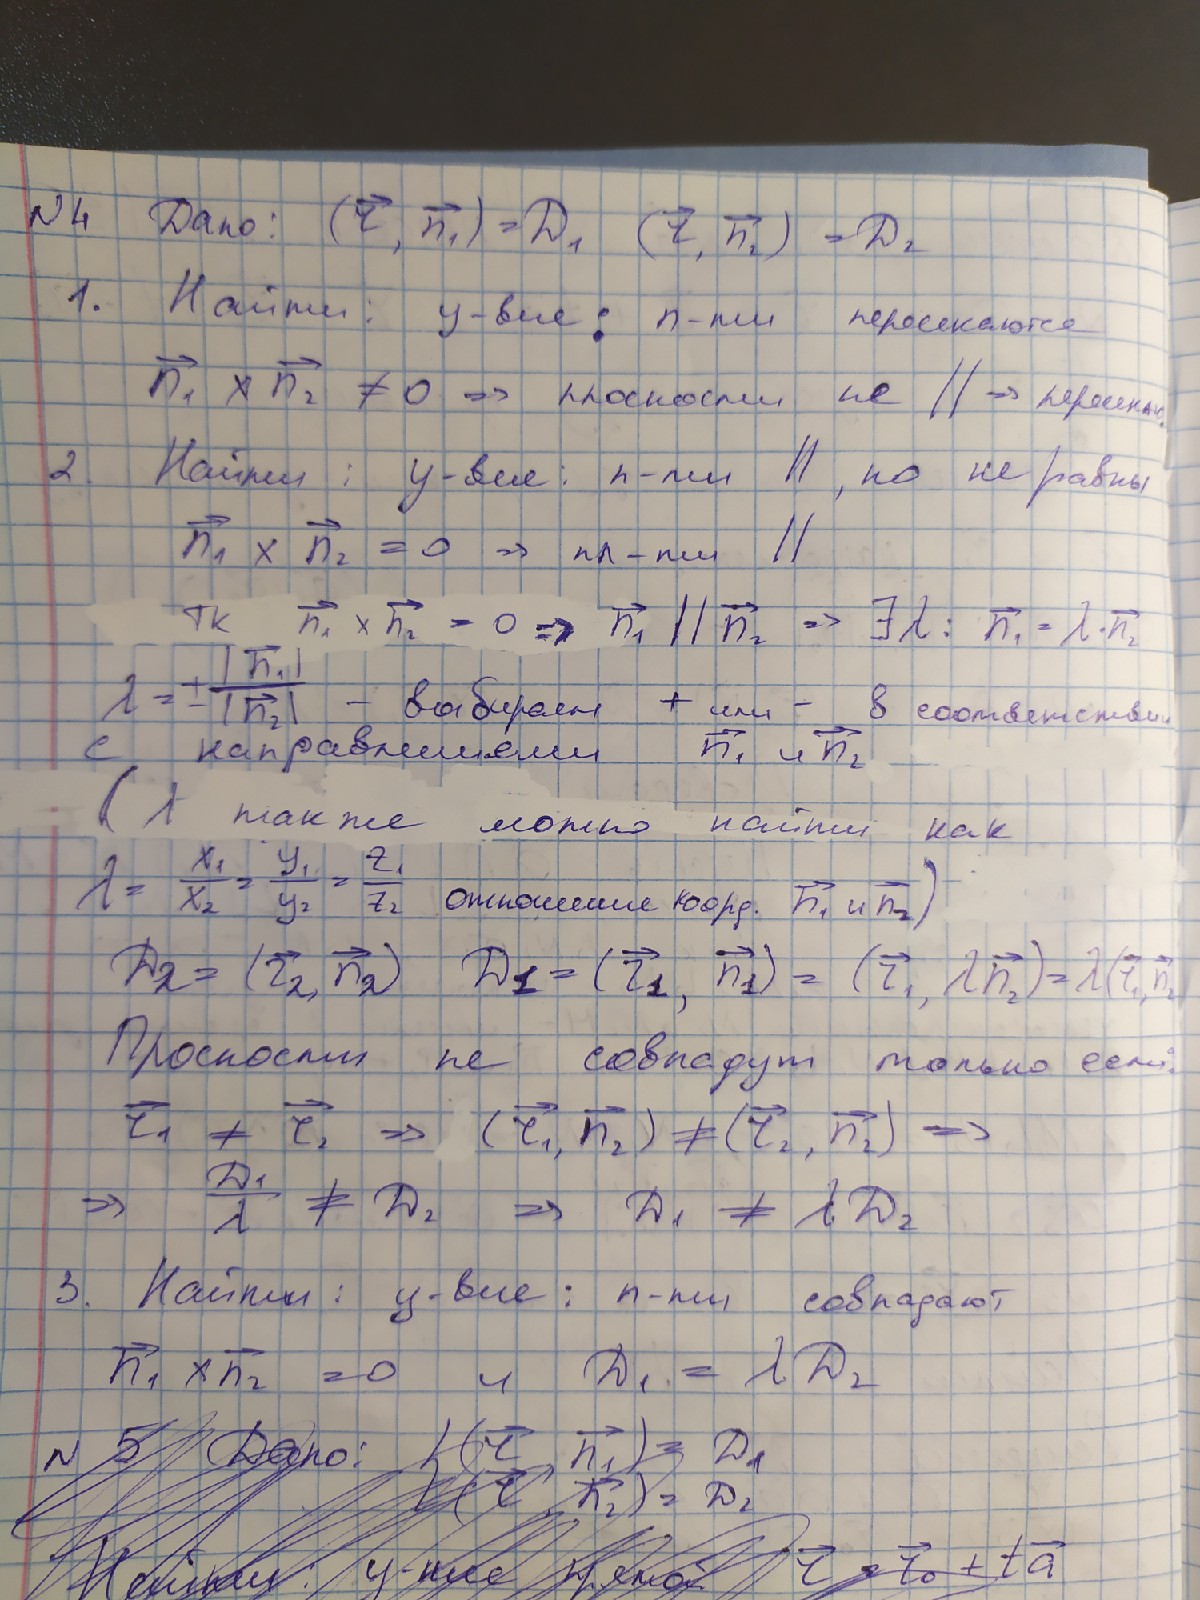 N4 Дано: (r⃗, n⃗₁) = D₁ (r⃗, n⃗₂) = D₂
1. Найти: у-вие: п-ти пересекаются
n⃗₁ × n⃗₂ ≠ 0 ⇒ плоскости не || ⇒ пересекаю
2. Найти: у-вие: п-ти ||, но не равны
n⃗₁ × n⃗₂ = 0 ⇒ пл-ти ||
тк n⃗₁ × n⃗₂ = 0 ⇒ n⃗₁ || n⃗₂ ⇒ ∃λ: n⃗₁ = λ·n⃗₂
λ = ± |n⃗₁| / |n⃗₂| – выбираем + или - в соответствии
с направлениями n⃗₁ и n⃗₂
(λ также можно найти как
λ = x₁/x₂ = y₁/y₂ = z₁/z₂ отношение коорд. n⃗₁ и n⃗₂)
D₂ = (r⃗₂, n⃗₂) D₁ = (r⃗₁, n⃗₁) = (r⃗₁, λn⃗₂) = λ(r⃗₁, n⃗₂
Плоскости не совпадут только если:
r⃗₁ ≠ r⃗₂ ⇒ (r⃗₁, n⃗₂) ≠ (r⃗₂, n⃗₂) ⇒
⇒ D₁/λ ≠ D₂ ⇒ D₁ ≠ λD₂
3. Найти: у-вие: п-ти совпадают
n⃗₁ × n⃗₂ = 0 и D₁ = λD₂
N5 Дано: { (r⃗, n⃗₁) = D₁
{ (r⃗, n⃗₂) = D₂
Найти: у-ние прямой r⃗ = r⃗₀ + ta⃗